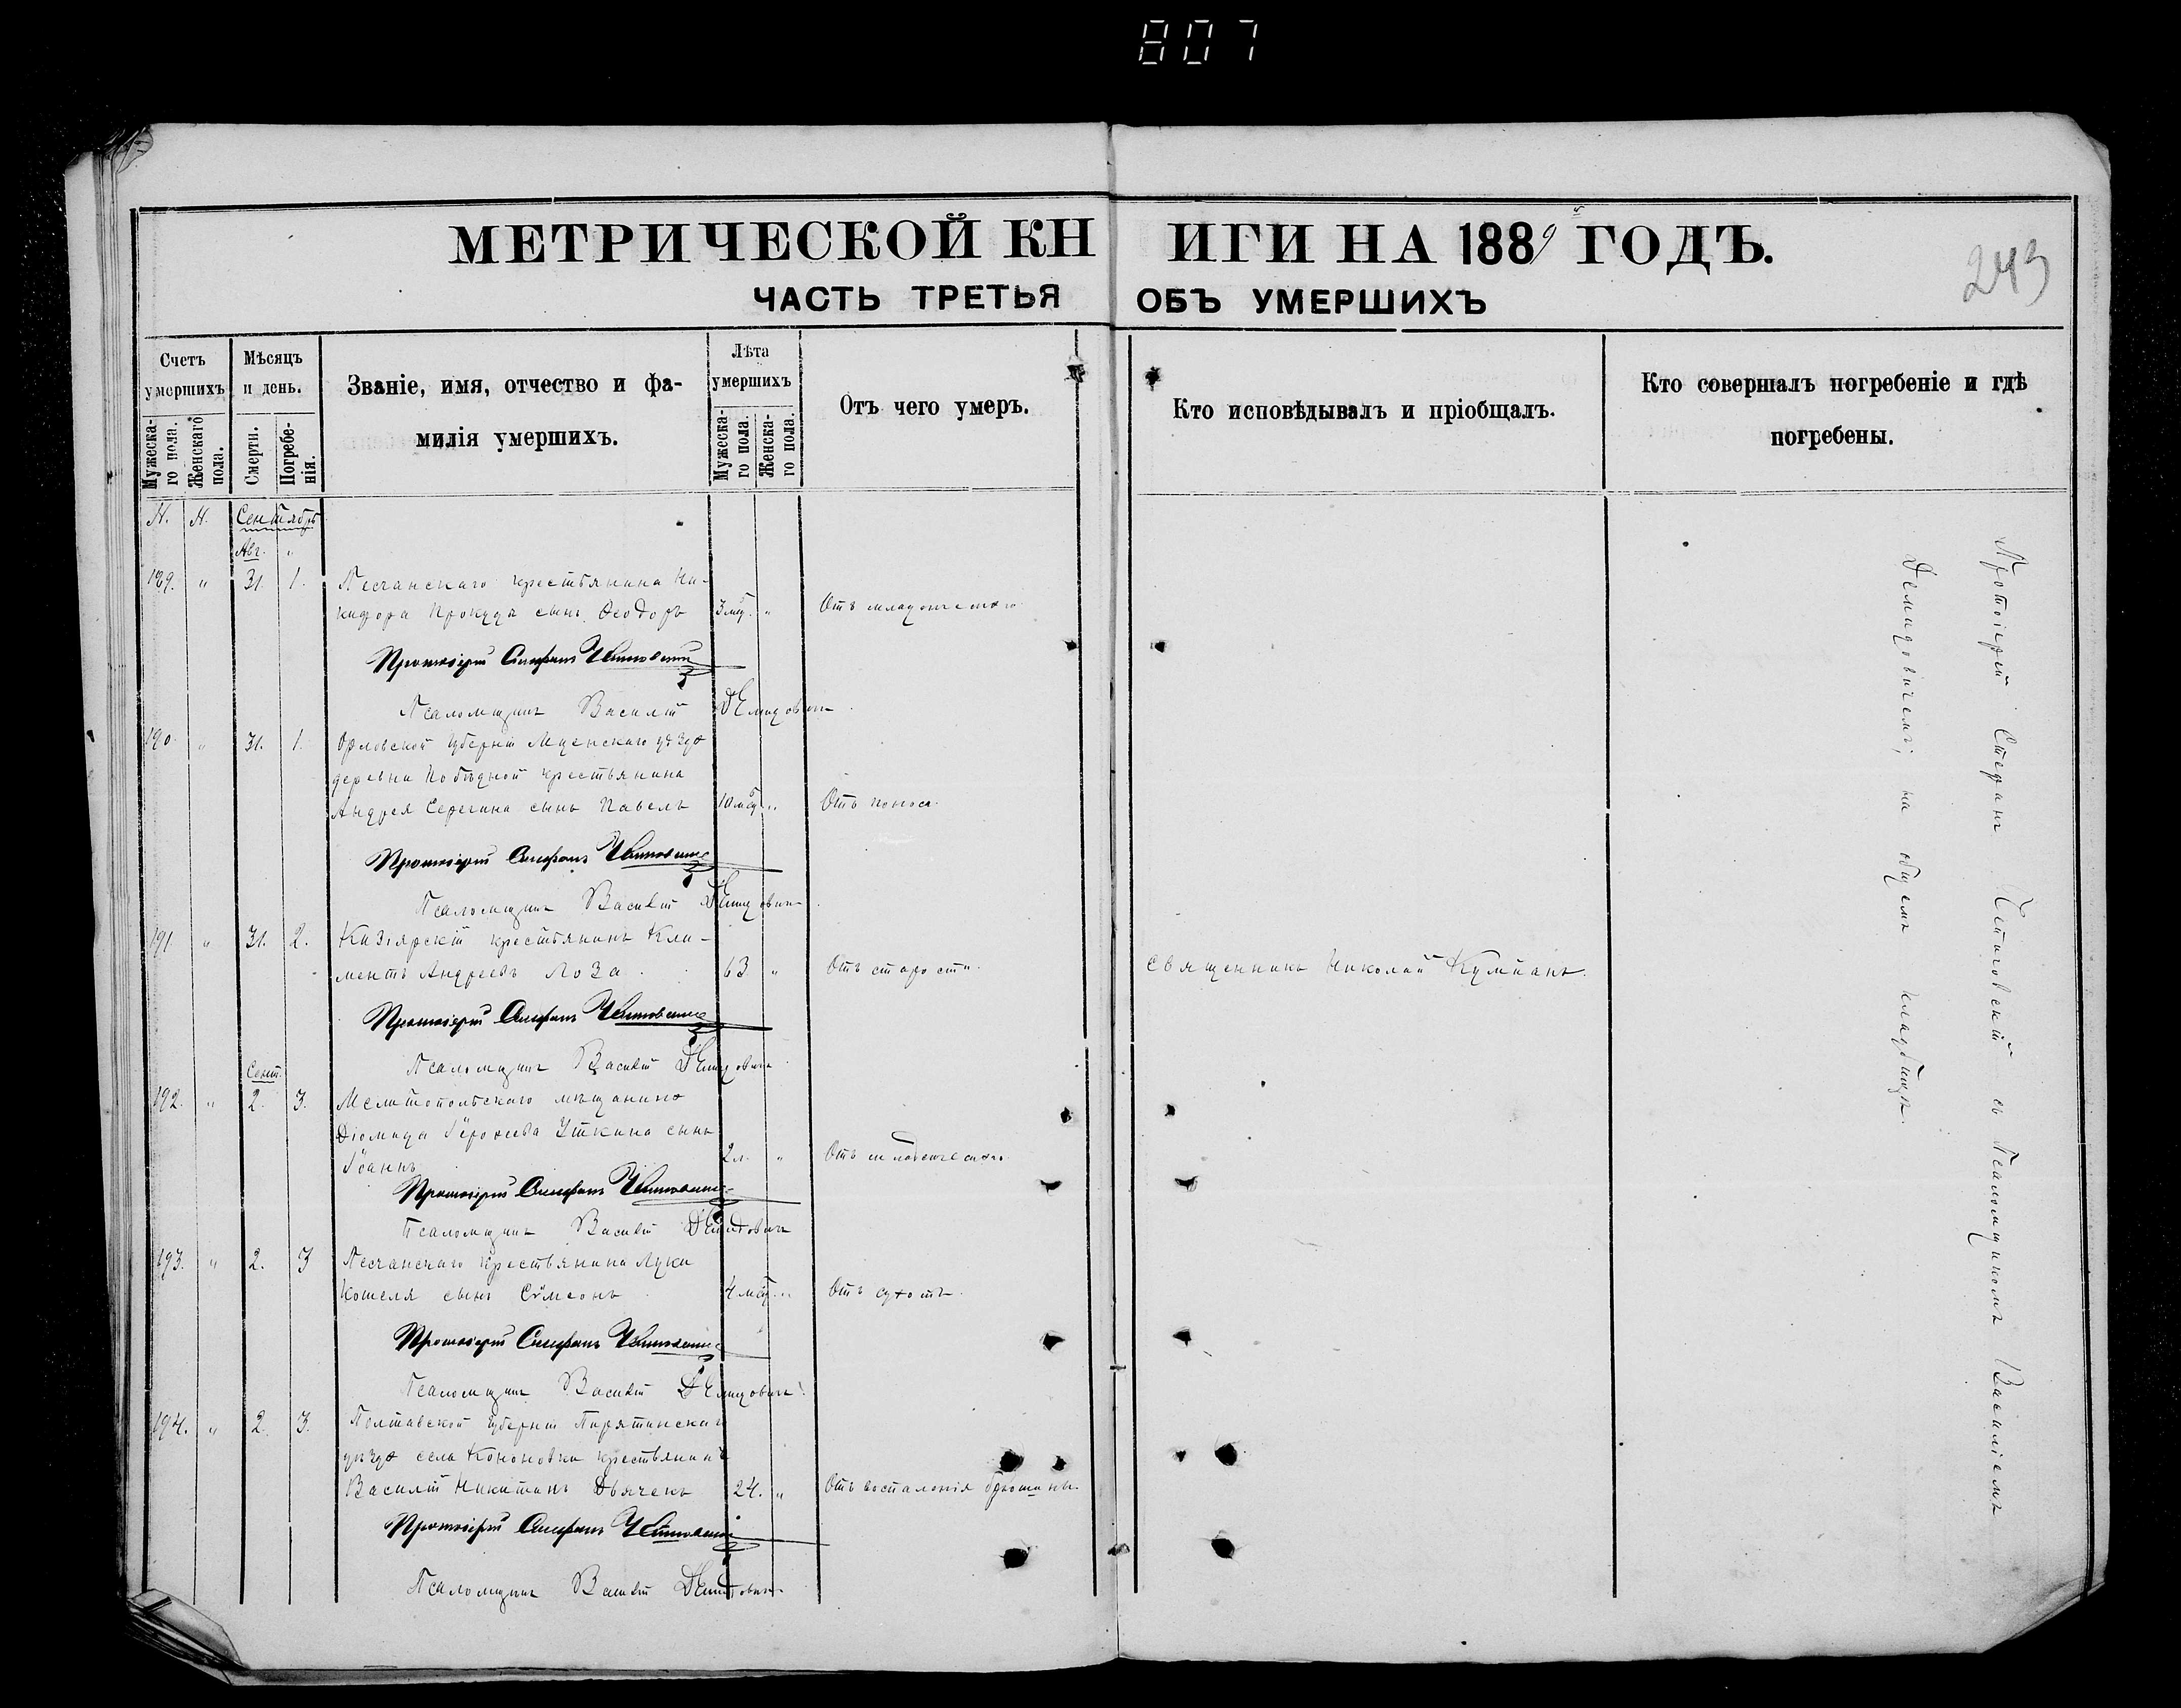 807
МЕТРИЧЕСКОЙ КНИГИ НА 1889 ГОДЪ.
243
ЧАСТЬ ТРЕТЬЯ ОБЪ УМЕРШИХЪ
Счетъ умершихъ
Мужескаго пола.
Женскаго пола.
Мѣсяцъ и день.
Смерти.
Погребенія.
Званіе, имя, отчество и фамилія умершихъ.
Лѣта умершихъ
Мужескаго пола.
Женскаго пола.
Отъ чего умеръ.
Кто исповѣдывалъ и пріобщалъ.
Кто совершалъ погребеніе и гдѣ погребены.
Сентябрь
Авг. "
189. " 31. 1. Песчанскаго крестьянина Ни-
кифора Прокуда сынъ Ѳеодоръ 3 мѣс. " Отъ младенческаго
Протоіерей Стефанъ
Псаломщикъ Василій Демидовичъ
190. " 31. 1. Орловской губерніи Мценскаго уѣзда
деревни Побѣдной крестьянина
Андрея Серегина сынъ Павелъ 10 мѣс. " Отъ поноса.
Протоіерей Стефанъ
Псаломщикъ Василій Демидовичъ
191. " 31. 2. Кизіярскій крестьянинъ Кли-
ментъ Андреевъ Лоза 63 " Отъ старости. Священникъ Николай Кумпанъ.
Протоіерей Стефанъ
Псаломщикъ Василій Демидовичъ
Сент.
192. " 2. 3. Мелитопольскаго мѣщанина
Діомида Іероѳеева Уткина сынъ
Іоаннъ 2 л. " Отъ младенческаго
Протоіерей Стефанъ
Псаломщикъ Василій Демидовичъ
193. " 2. 3 Песчанскаго крестьянина Луки
Кошеля сынъ Сѵмеонъ 4 мѣс. " Отъ сухотъ.
Протоіерей Стефанъ
Псаломщикъ Василій Демидовичъ
194. " 2. 3. Полтавской губерніи Пирятинскаго
уѣзда села Кононовки крестьянинъ
Василій Никитинъ Дьячекъ 24. " Отъ воспаленія брюшины.
Протоіерей Стефанъ
Псаломщикъ Василій Демидовичъ
Протоіерей Стефанъ съ Псаломщикомъ Василіемъ
Демидовичемъ, на общемъ кладбищѣ.